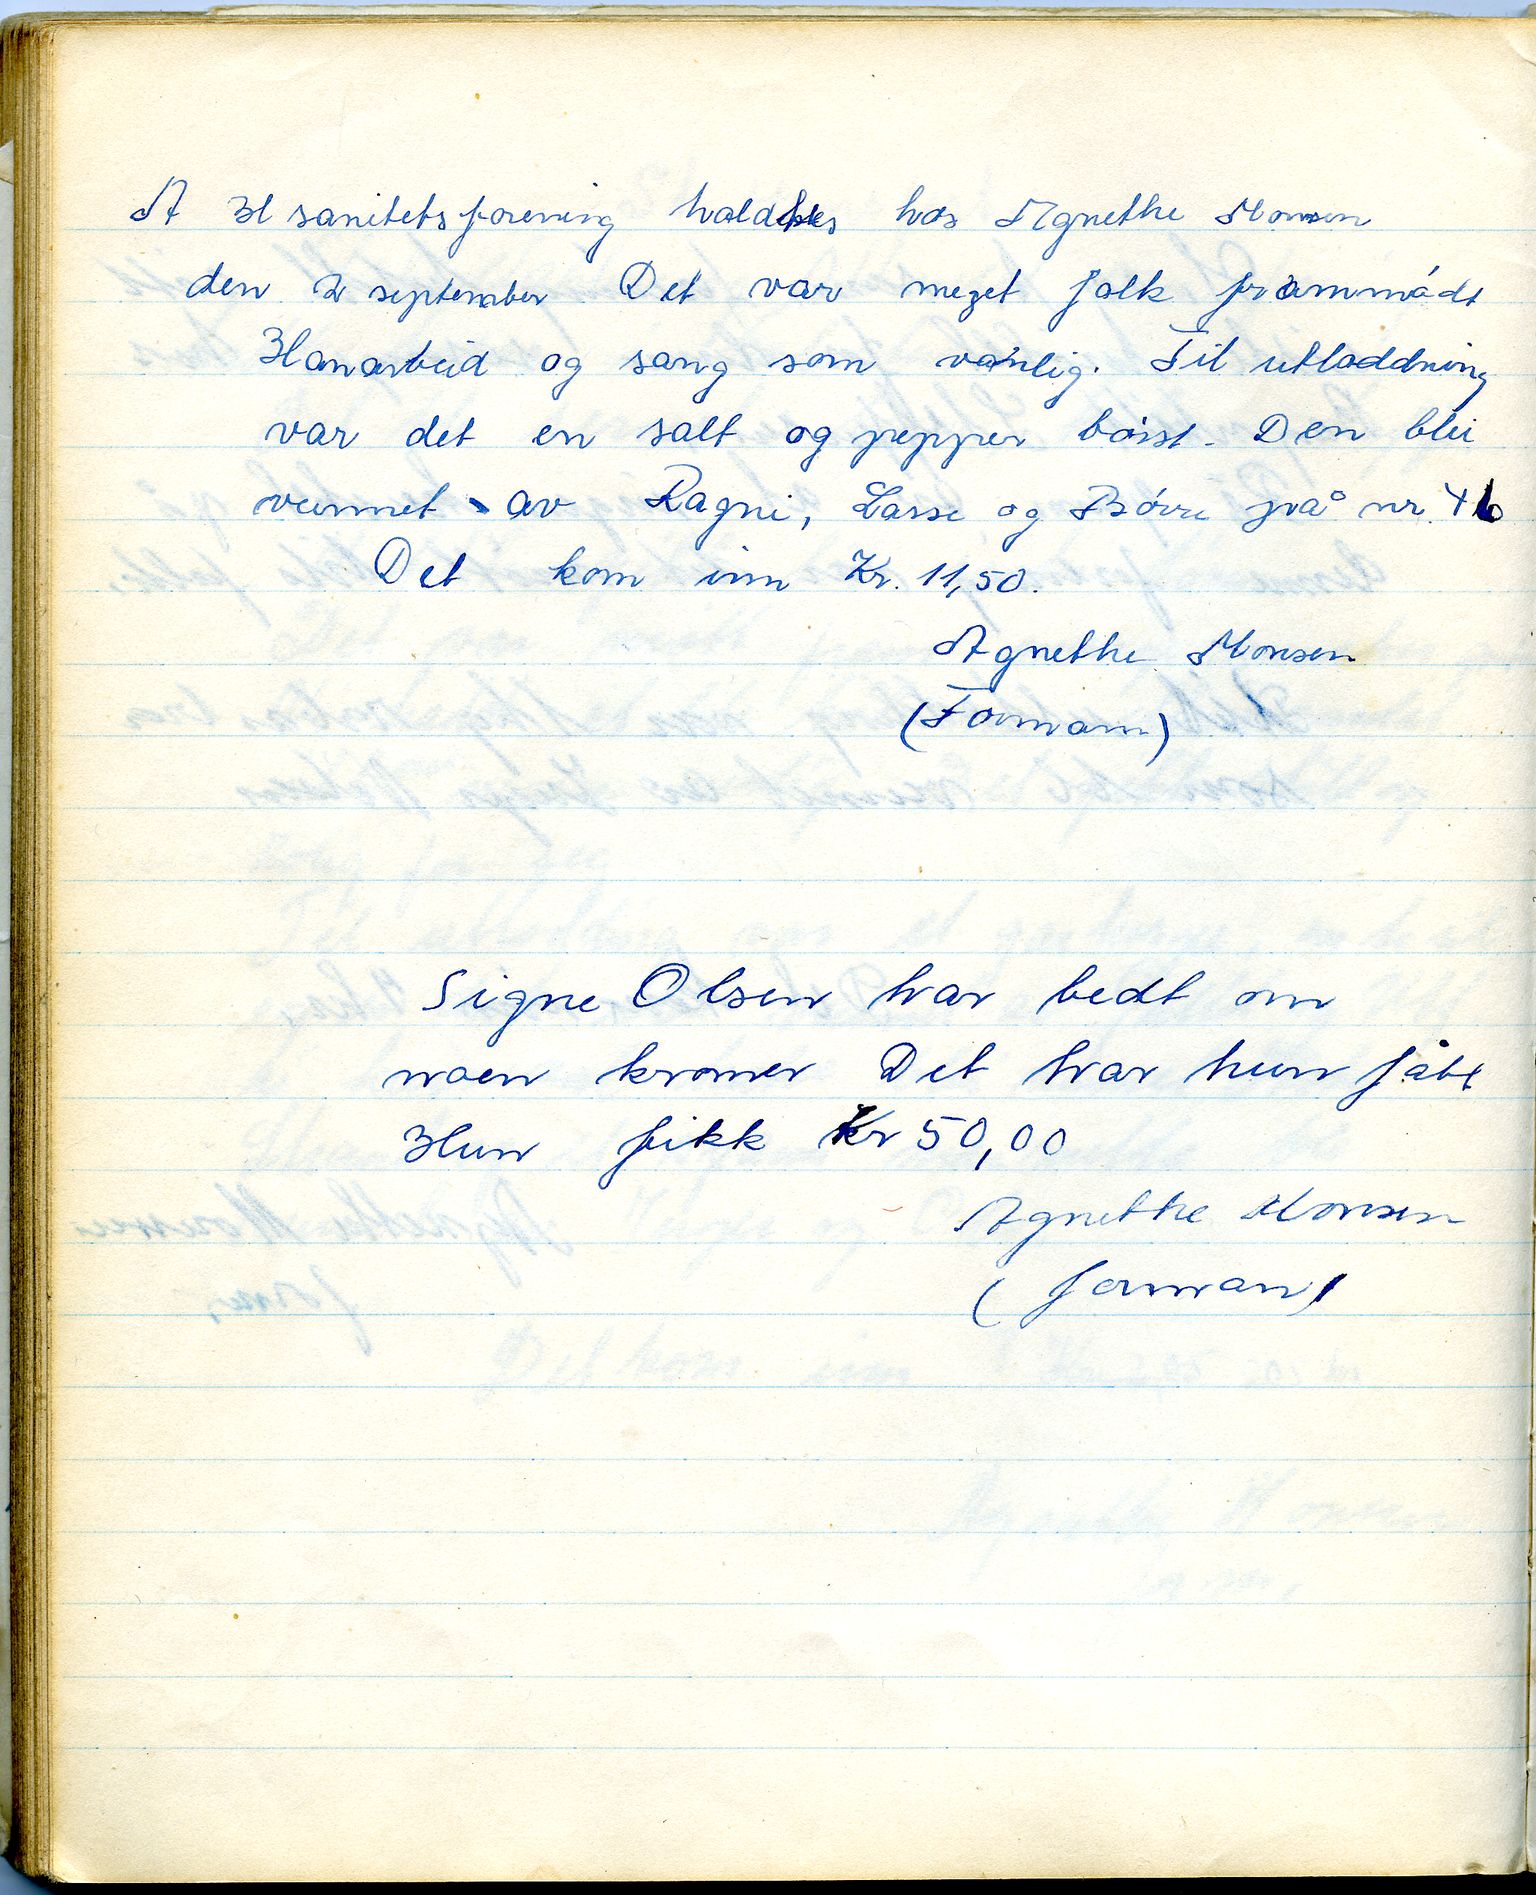 A H sanitetsforening holdtes hos Agnethe Monsen
den 2 september. Det var meget folk frammødt
Hanarbeid og sang som vanlig. Til utloddning
var det en salt og pepper børst. Den blei
vunnet av Ragni, Lasse og Børre på nr. 46
Det kom inn Kr. 11,50.
Agnethe Monsen
(Formann)
Signe Olsen har bedt om
noen kroner Det har hun fått
Hun fikk Kr 50,00
Agnethe Monsen
(forman)